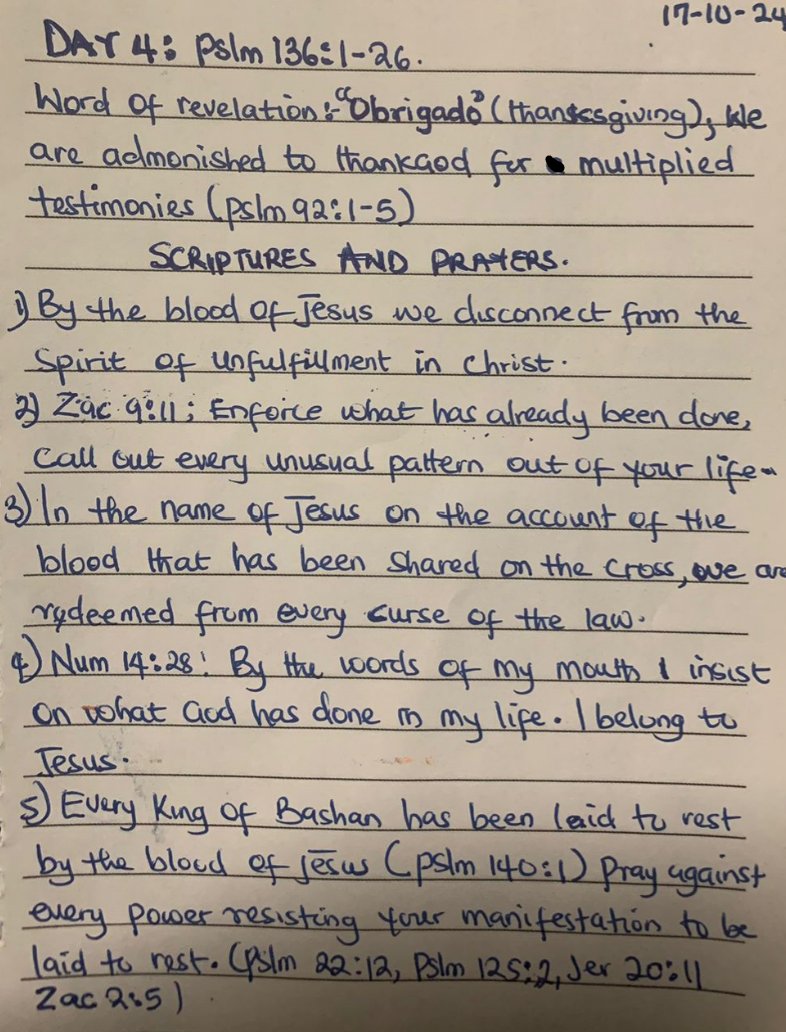 17-10-24
DAY 4: Pslm 136:1-26.
Word of revelation:- "Obrigado" (thanksgiving), We
are admonished to thankGod for multiplied
testimonies (Pslm 92:1-5)
SCRIPTURES AND PRAYERS.
1) By the blood of Jesus we disconnect from the
Spirit of unfulfillment in Christ.
2) Zac 9:11; Enforce what has already been done,
Call out every unusual pattern out of your life.
3) In the name of Jesus on the account of the
blood that has been shared on the cross, we are
redeemed from every curse of the law.
4) Num 14:28: By the words of my mouth I insist
on what God has done in my life. I belong to
Jesus.
5) Every King of Bashan has been laid to rest
by the blood of Jesus (Pslm 140:1) Pray against
every power resisting your manifestation to be
laid to rest. (Pslm 22:12, Pslm 125:2, Jer 20:11
Zac 2:5)